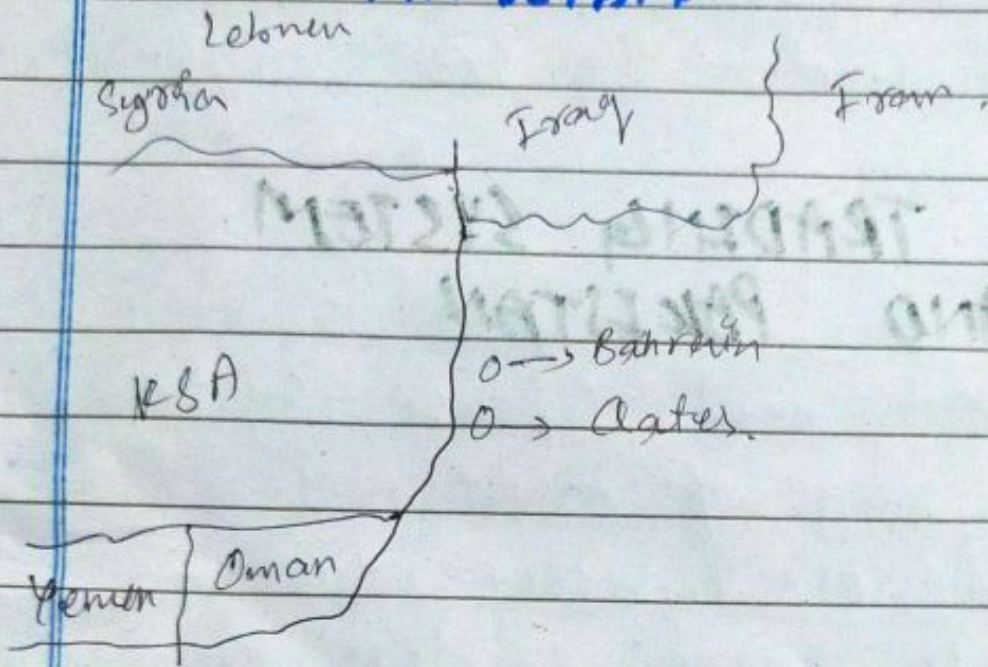 Lebonen
Syria
Iraq
Iran.
KSA
O → Bahrain
O → Qater.
Yemen
Oman